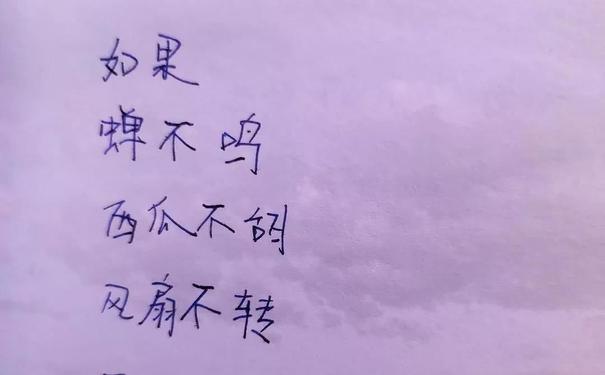 如果
蝉不鸣
西瓜不甜
风扇不转